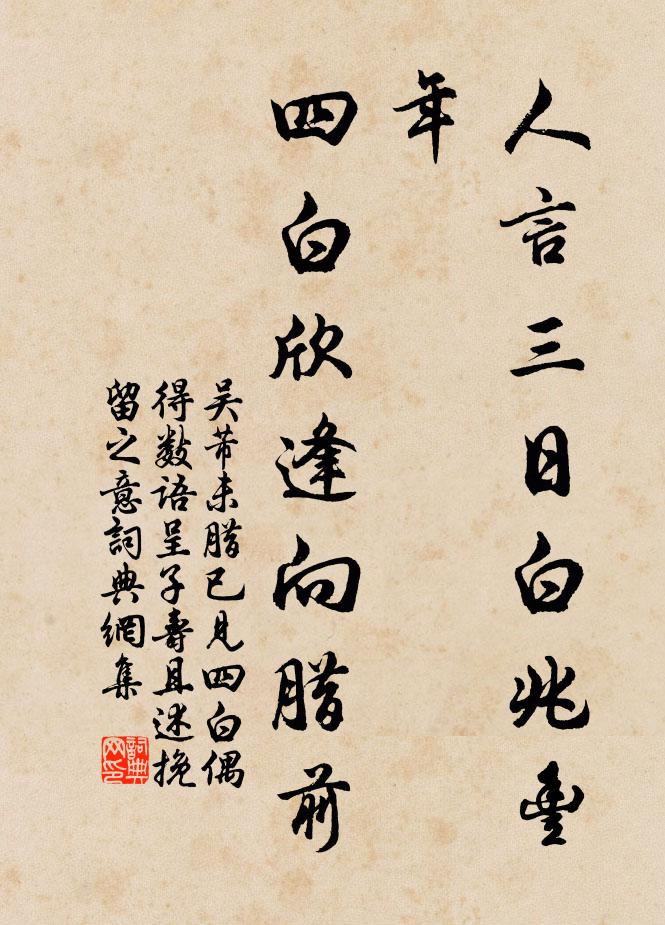 人言三日白兆豐
年
四白欣逢向腊前
吴芾未腊已見四白偶
得数語呈子壽且述挽
留之意詞典網集
詞典
网印